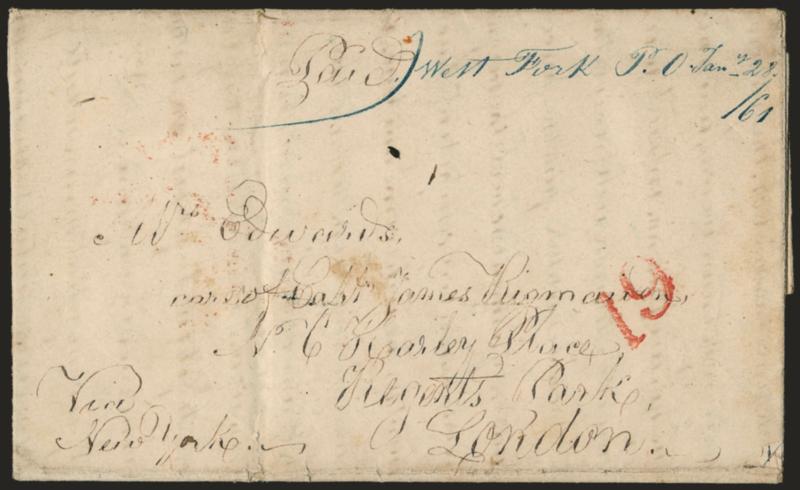 Paid. West Fork P. O. Jany 28.
/61
Mrs Edwards,
care of Capt. James Rigmaiden,
No 6 Harley Place,
Regents Park,
London.
Via
New York.
19